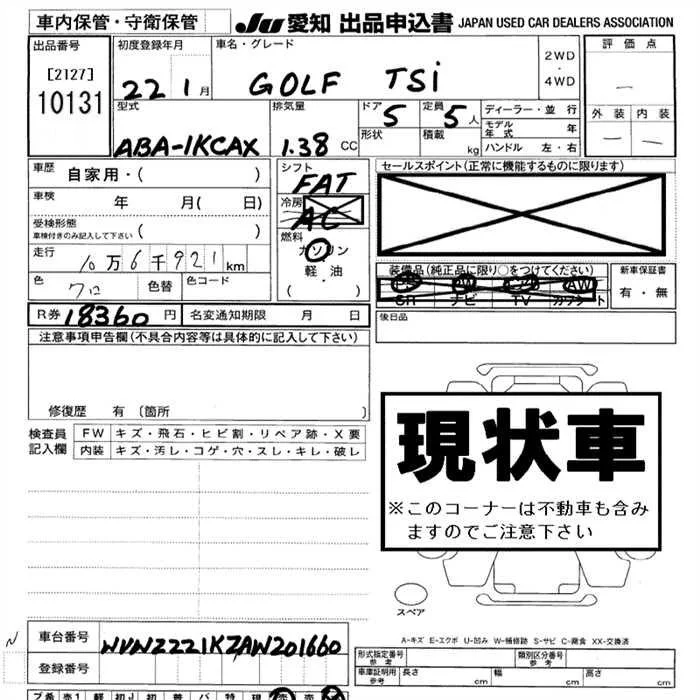 車内保管・守衛保管
JU 愛知 出品申込書 JAPAN USED CAR DEALERS ASSOCIATION
出品番号
[2127]
10131
初度登録年月
22 1月
車名・グレード
GOLF TSi
2WD
・
4WD
評価点
—
外装 内装
— —
型式
ABA-1KCAX
排気量
1.38 CC
ドア
5
形状
定員
5人
積載
kg
ディーラー・並行
モデル年式 年
ハンドル 左・右
車歴 自家用・( )
車検 年 月( 日)
受検形態
車検付きのみ記入して下さい ( )
走行 10万6千921km
色 クロ 色替 色コード
シフト
FAT
冷房
AC
燃料
ガソリン
・
軽・油
( ・ )
セールスポイント(正常に機能するものに限ります)
装備品(純正品に限り○をつけてください)
SR ナビ TV
AW
新車保証書
有・無
後日品
R券 18360円 名変通知期限 月 日
注意事項申告欄(不具合内容等は具体的に記入して下さい)
修復歴 有〔箇所 〕
検査員記入欄
FW キズ・飛石・ヒビ割・リペア跡・X要
内装 キズ・汚レ・コゲ・穴・スレ・キレ・破レ
現状車
※このコーナーは不動車も含みますのでご注意下さい
スペア
A-キズ E-エクボ U-凹み W-補修跡 S-サビ C-腐食 XX-交換済
N
車台番号 WVWZZZ1KZAW201660
登録番号
形式指定番号
参考
類別区分番号
参考
車庫証明用
参考
長さ cm 幅 cm 高さ cm